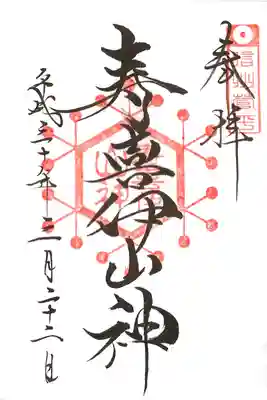 信州菅平
奉拝
寿喜伊山神
平成三十年三月二十二日